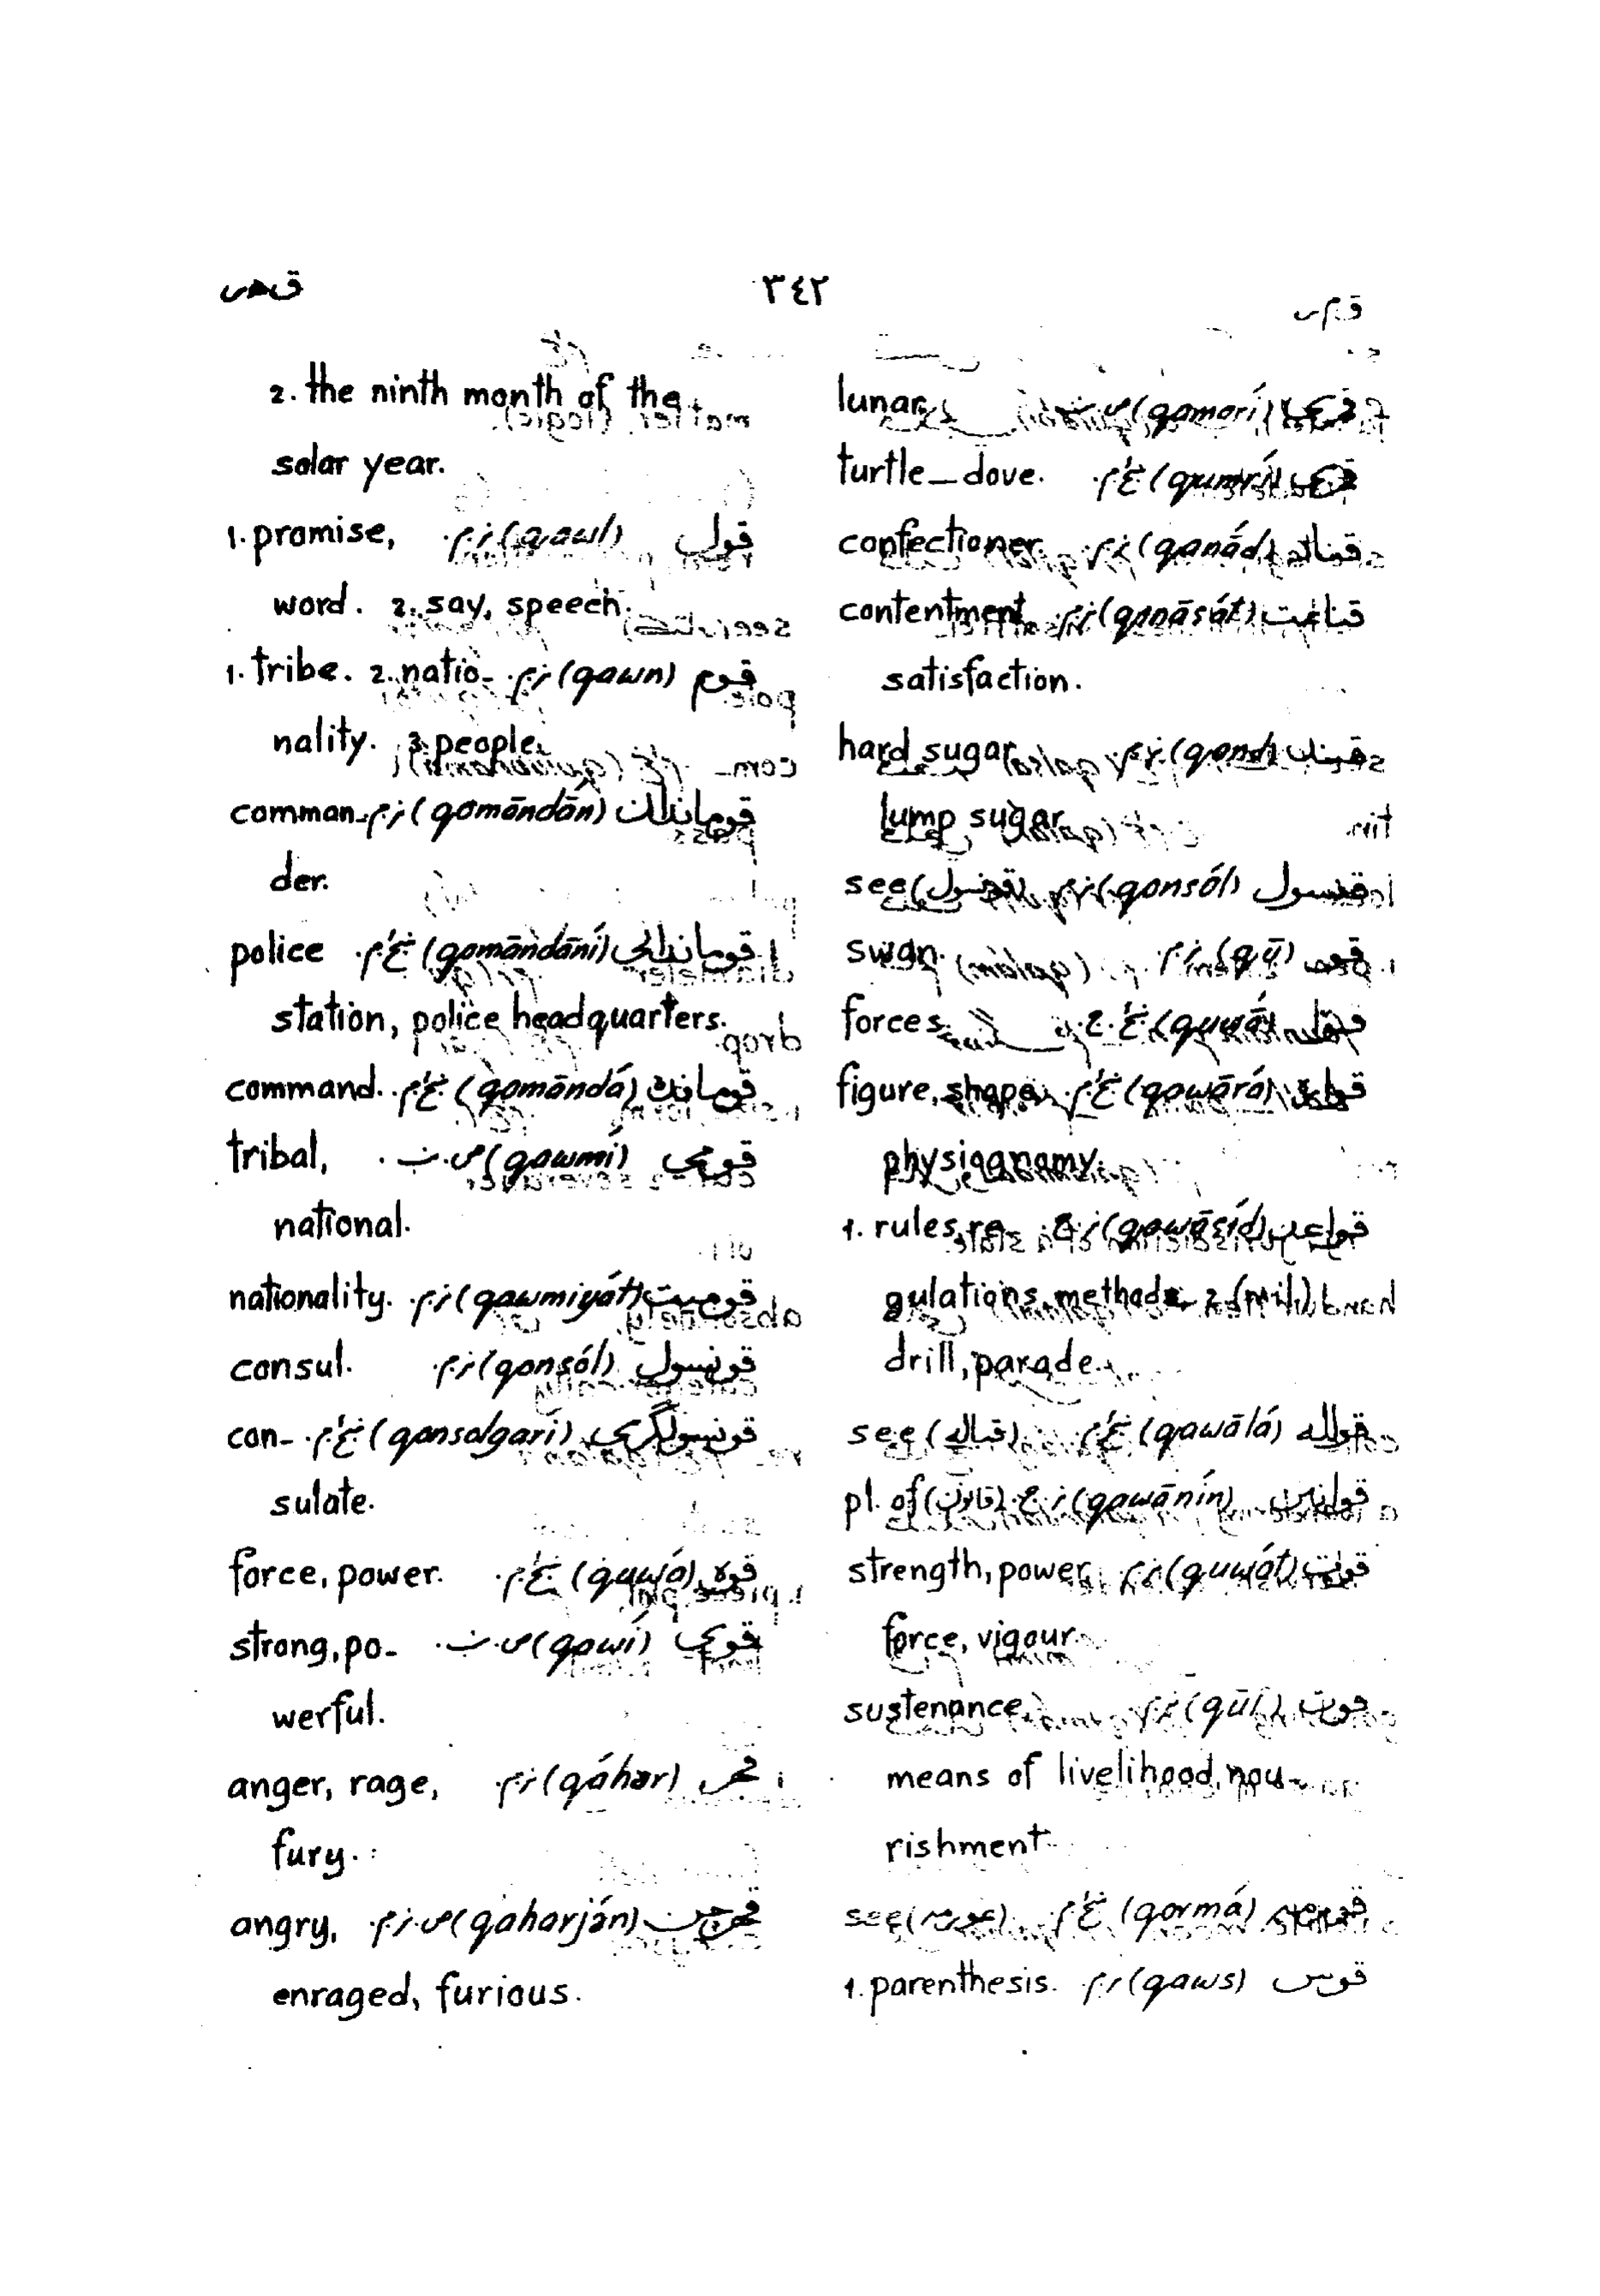 ق‌م‌ر
٣٤٢
ق‌ه‌ر
lunar. ص.ن (qamarí) قمري
turtle_dove. ښځ.م. (qumrí) قمري
confectioner. نر.م. (qanád) قناد
contentment, نر.م. (qanāsát) قناعت
satisfaction.
hard sugar, نر.م. (qand) قند
lump sugar.
see (قونسول) نر.م. (qonsól) قنسول
swan. نر.م. (qū) قو
forces. ښځ.ج. (quwá)
figure, shape, ښځ.م. (qawārá) قواره
physiognomy.
1. rules, re- نر.ج. (qawāsíd) قواعد
gulations, methods. 2. (mil.)
drill, parade.
see (قباله) ښځ.م. (qawālá) قواله
pl. of (قانون) نر.ج. (qawānín) قوانين
strength, power, نر.م. (quwát) قوت
force, vigour.
sustenance, نر.م. (qūt) قوت
means of livelihood, nou-
rishment.
see ښځ.م. (qormá) قورمه
1. parenthesis. نر.م. (qaws) قوس
2. the ninth month of the
solar year.
1. promise, نر.م. (qawl) قول
word. 2. say, speech.
1. tribe. 2. natio- نر.م. (qawn) قوم
nality. 3. people.
comman- نر.م. (qomāndān) قوماندان
der.
police ښځ.م. (qomāndāní) قومانداني
station, police headquarters.
command. ښځ.م. (qomāndá) قومانده
tribal, ص.ن. (qawmí) قومي
national.
nationality. نر.م. (qawmiyát) قوميت
consul. نر.م. (qonsól) قونسول
con- ښځ.م. (qonsolgarí) قونسولگري
sulate.
force, power. ښځ.م. (quwá) قوه
strong, po- ص.ن. (qawí) قوي
werful.
anger, rage, نر.م. (qáhar) قهر
fury.
angry, ص.نر.م. (qaharján) قهرجن
enraged, furious.